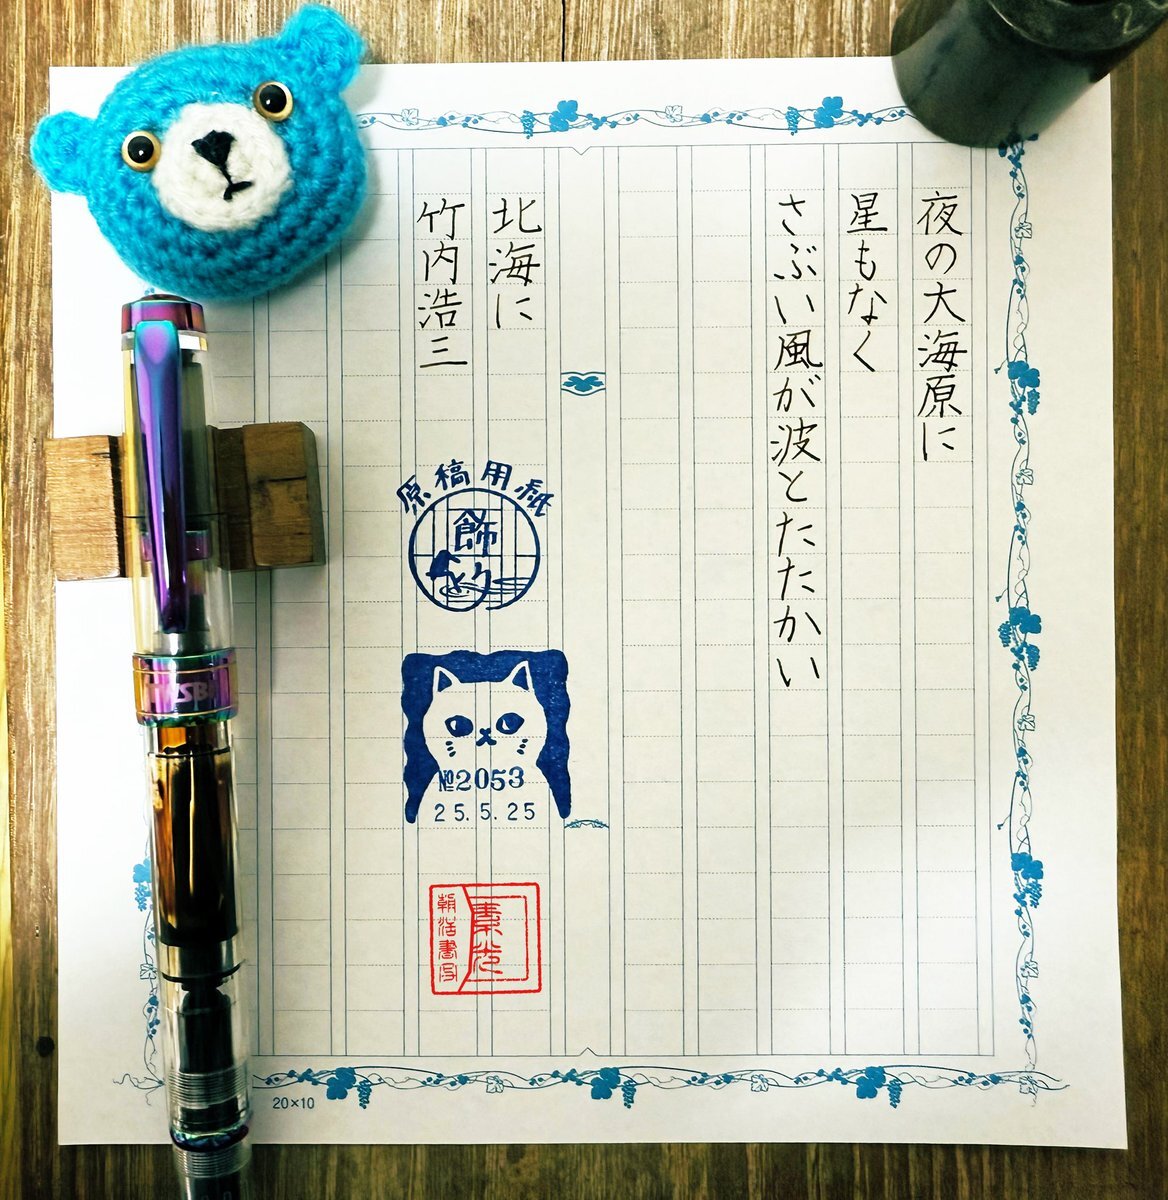 夜の大海原に
星もなく
さぶい風が波とたたかい
北海に
竹内浩三
原稿用紙
飾
№2053
25.5.25
朝活書写
20×10
TWSBI